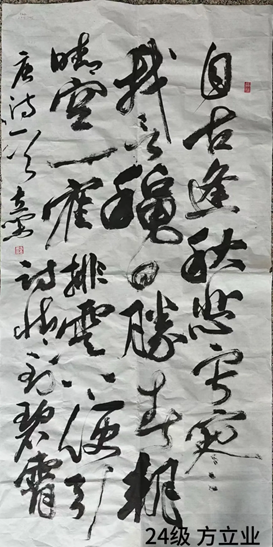 自古逢秋悲寂寥
我言穐日勝春朝
晴空一隺排雲上便引
詩情到碧霄
唐诗一首 立業
24级 方立业